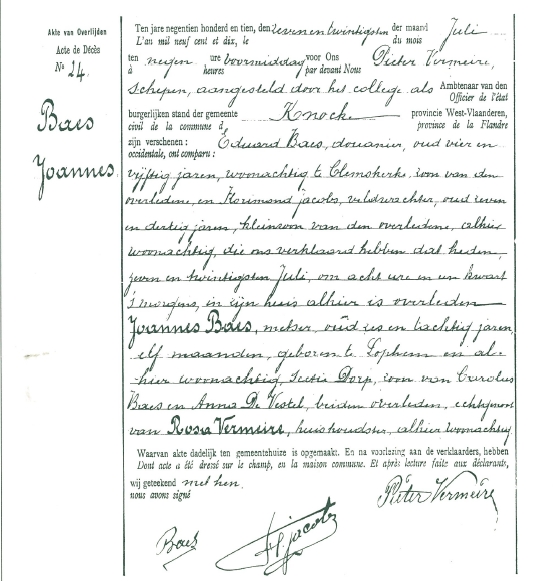 Akte van Overlijden
Acte de Décès
N° 24.
Baes
Joannes
Ten jare negentien honderd en tien, den zeven en twintigsten der maand Juli
L'an mil neuf cent et dix, le du mois
ten negen ure voormiddag voor Ons Pieter Vermeire,
à heures par devant Nous
schepen, aangesteld door het college als Ambtenaar van den
Officier de l'état
burgerlijken stand der gemeente Knocke provincie West-Vlaanderen,
civil de la commune d province de la Flandre
zijn verschenen : Eduard Baes, douanier, oud vier en
occidentale, ont comparu :
vijftig jaren, woonachtig te Clemskerke, zoon van den
overledene, en jacobs, veldwachter, oud zeven
en dertig jaren, kleinzoon van den overledene, alhier
woonachtig, die ons verklaard hebben dat heden,
zeven en twintigsten Juli, om acht ure en un kwart
's morgens, in zijn huis alhier is overleden
Joannes Baes, metser, oud zes en tachtig jaren,
elf maanden, geboren te Lophem en al-
hier woonachtig, sectie Dorp, zoon van Carolus
Baes en Anna De Vestel, beiden overleden, echtgenoot
van Rosa Vermeire, huishoudster, alhier woonachtig.
Waarvan akte dadelijk ten gemeentehuize is opgemaakt. En na voorlezing aan de verklaarders, hebben
Dont acte a été dressé sur le champ, en la maison commune. Et après lecture faite aux déclarants,
wij geteekend met hen.
nous avons signé
Pieter Vermeire
Baes
jacobs